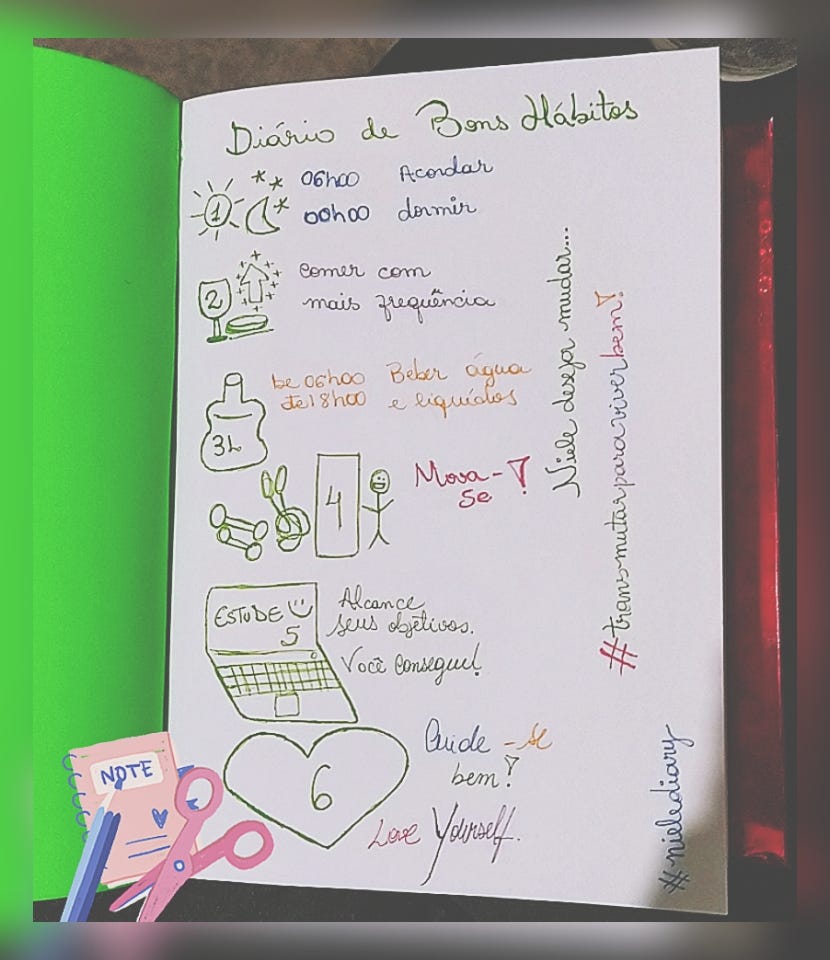 Diário de Bons Hábitos
1
06h00 Acordar
00h00 dormir
2
comer com
mais frequência
3L
De 06h00 Beber água
até 18h00 e liquídos
4
Mova-
se!
ESTUDE
5
Alcance
seus objetivos.
Você consegue!
6
Cuide-se
bem!
Love Yourself.
Niele deseja mudar...
#transmutarparaviverbem!
#nielediary
NOTE